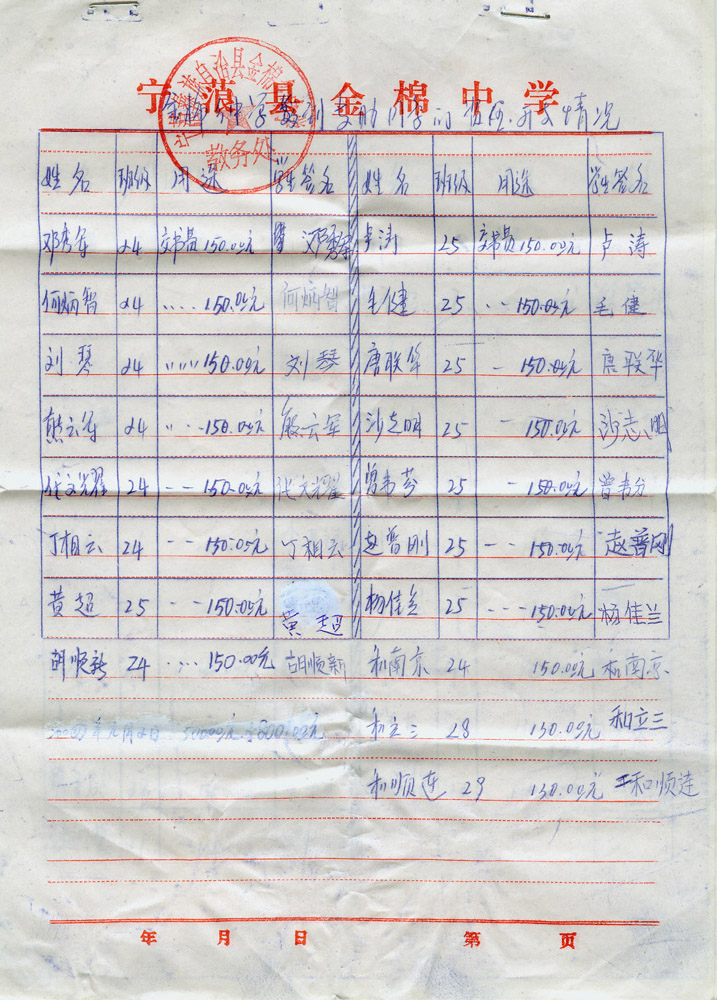 宁蒗县金棉中学
金棉中学收到受助同学的资金开支情况
姓名 班级 用途 学生签名 姓名 班级 用途 学生签名
邓秀军 24 交书费150.00元 卢涛 25 交书费150.00元 卢涛
何炳智 24 150.00元 何炳智 毛健 25 150.00元 毛健
刘琴 24 150.00元 刘琴 唐联华 25 150.00元 唐联华
熊云军 24 150.00元 熊云军 沙志明 25 150.00元 沙志明
24 150.00元 曾韦芬 25 150.00元
丁相云 24 150.00元 丁相云 赵普刚 25 150.00元 赵普刚
黄超 25 150.00元 黄超 杨佳兰 25 150.00元 杨佳兰
胡顺新 24 150.00元 胡顺新 和南京 24 150.00元 和南京
和立三 28 130.00元 和立三
和顺连 29 130.00元 和顺连
年 月 日 第 页
教务处